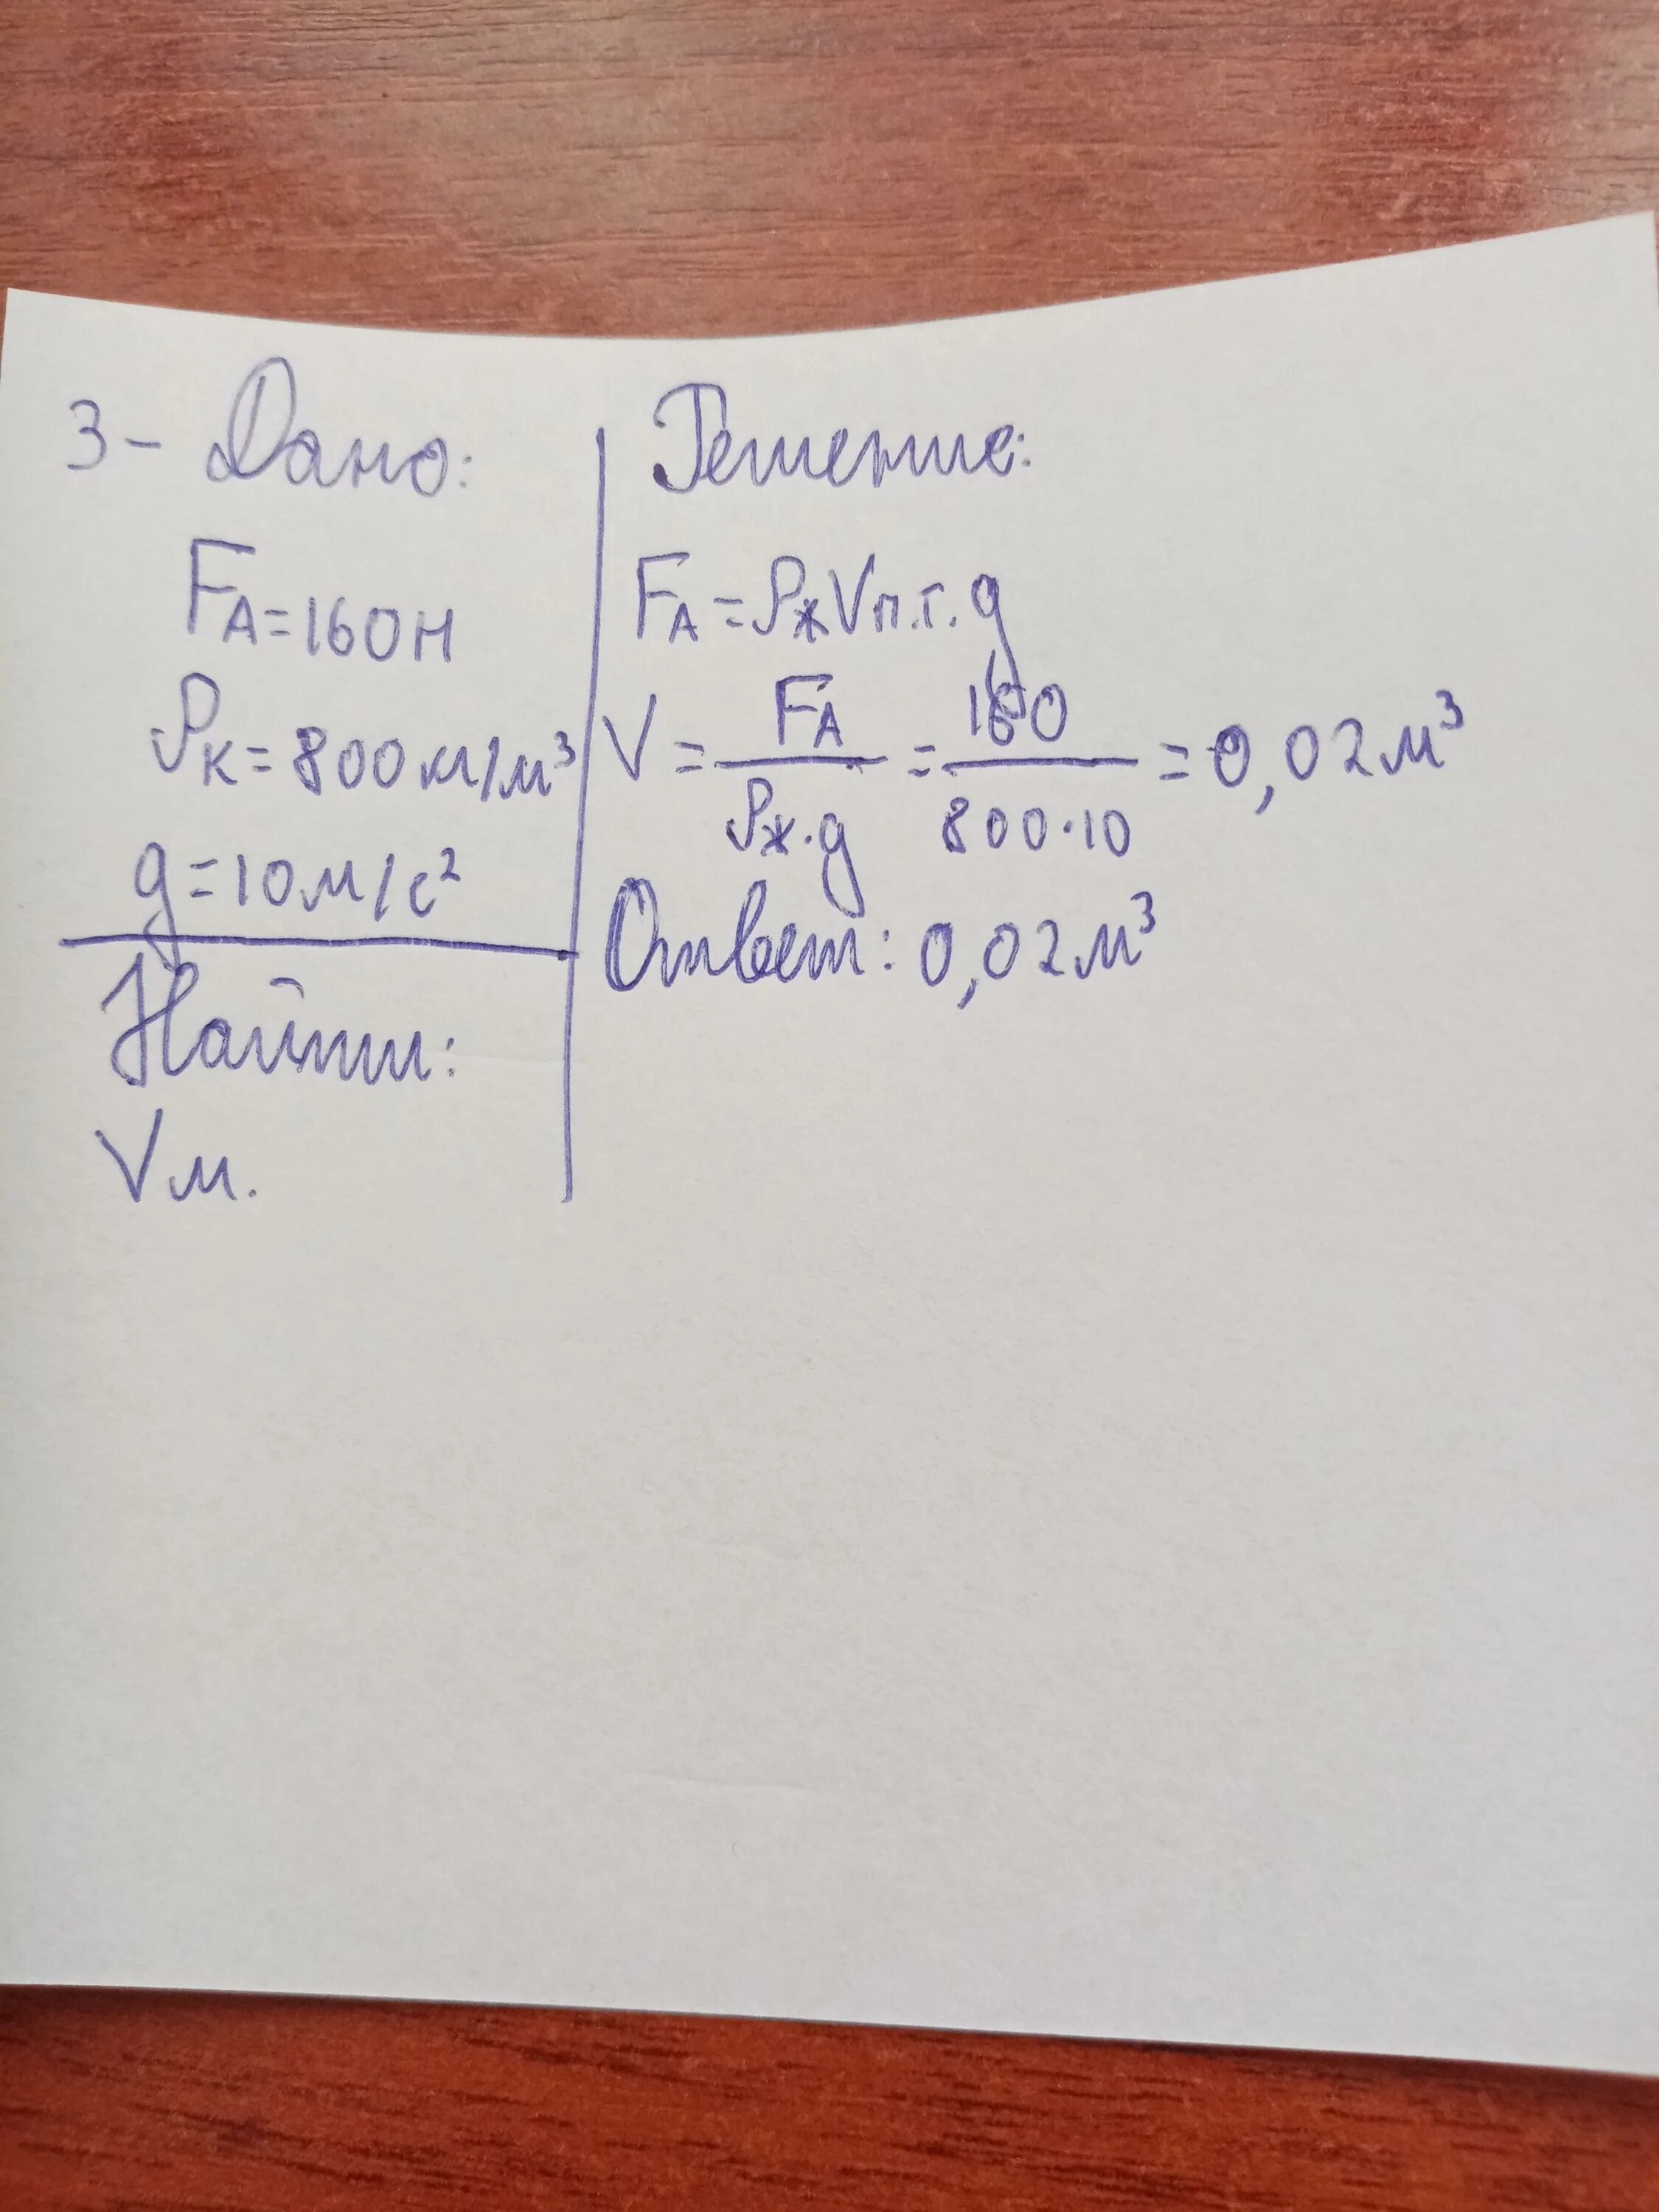 3- Дано:
FА=160Н
ρк=800кг/м³
g=10м/с²
Найти:
Vм.
Решение:
FА=ρжVп.т.g
V=FА/ρж·g=160/800·10=0,02м³
Ответ: 0,02м³